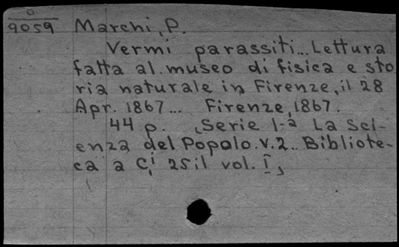 a
9059 Marchi, P.
Vermi parassiti... Lettura
fatta al museo di fisica e sto
ria naturale in Firenze, il 28
Apr. 1867... Firenze, 1867.
44 p. (Serie 1.a La Sci-
enza del Popolo. V.2.. Bibliote-
ca a C.i 25 il vol. I,